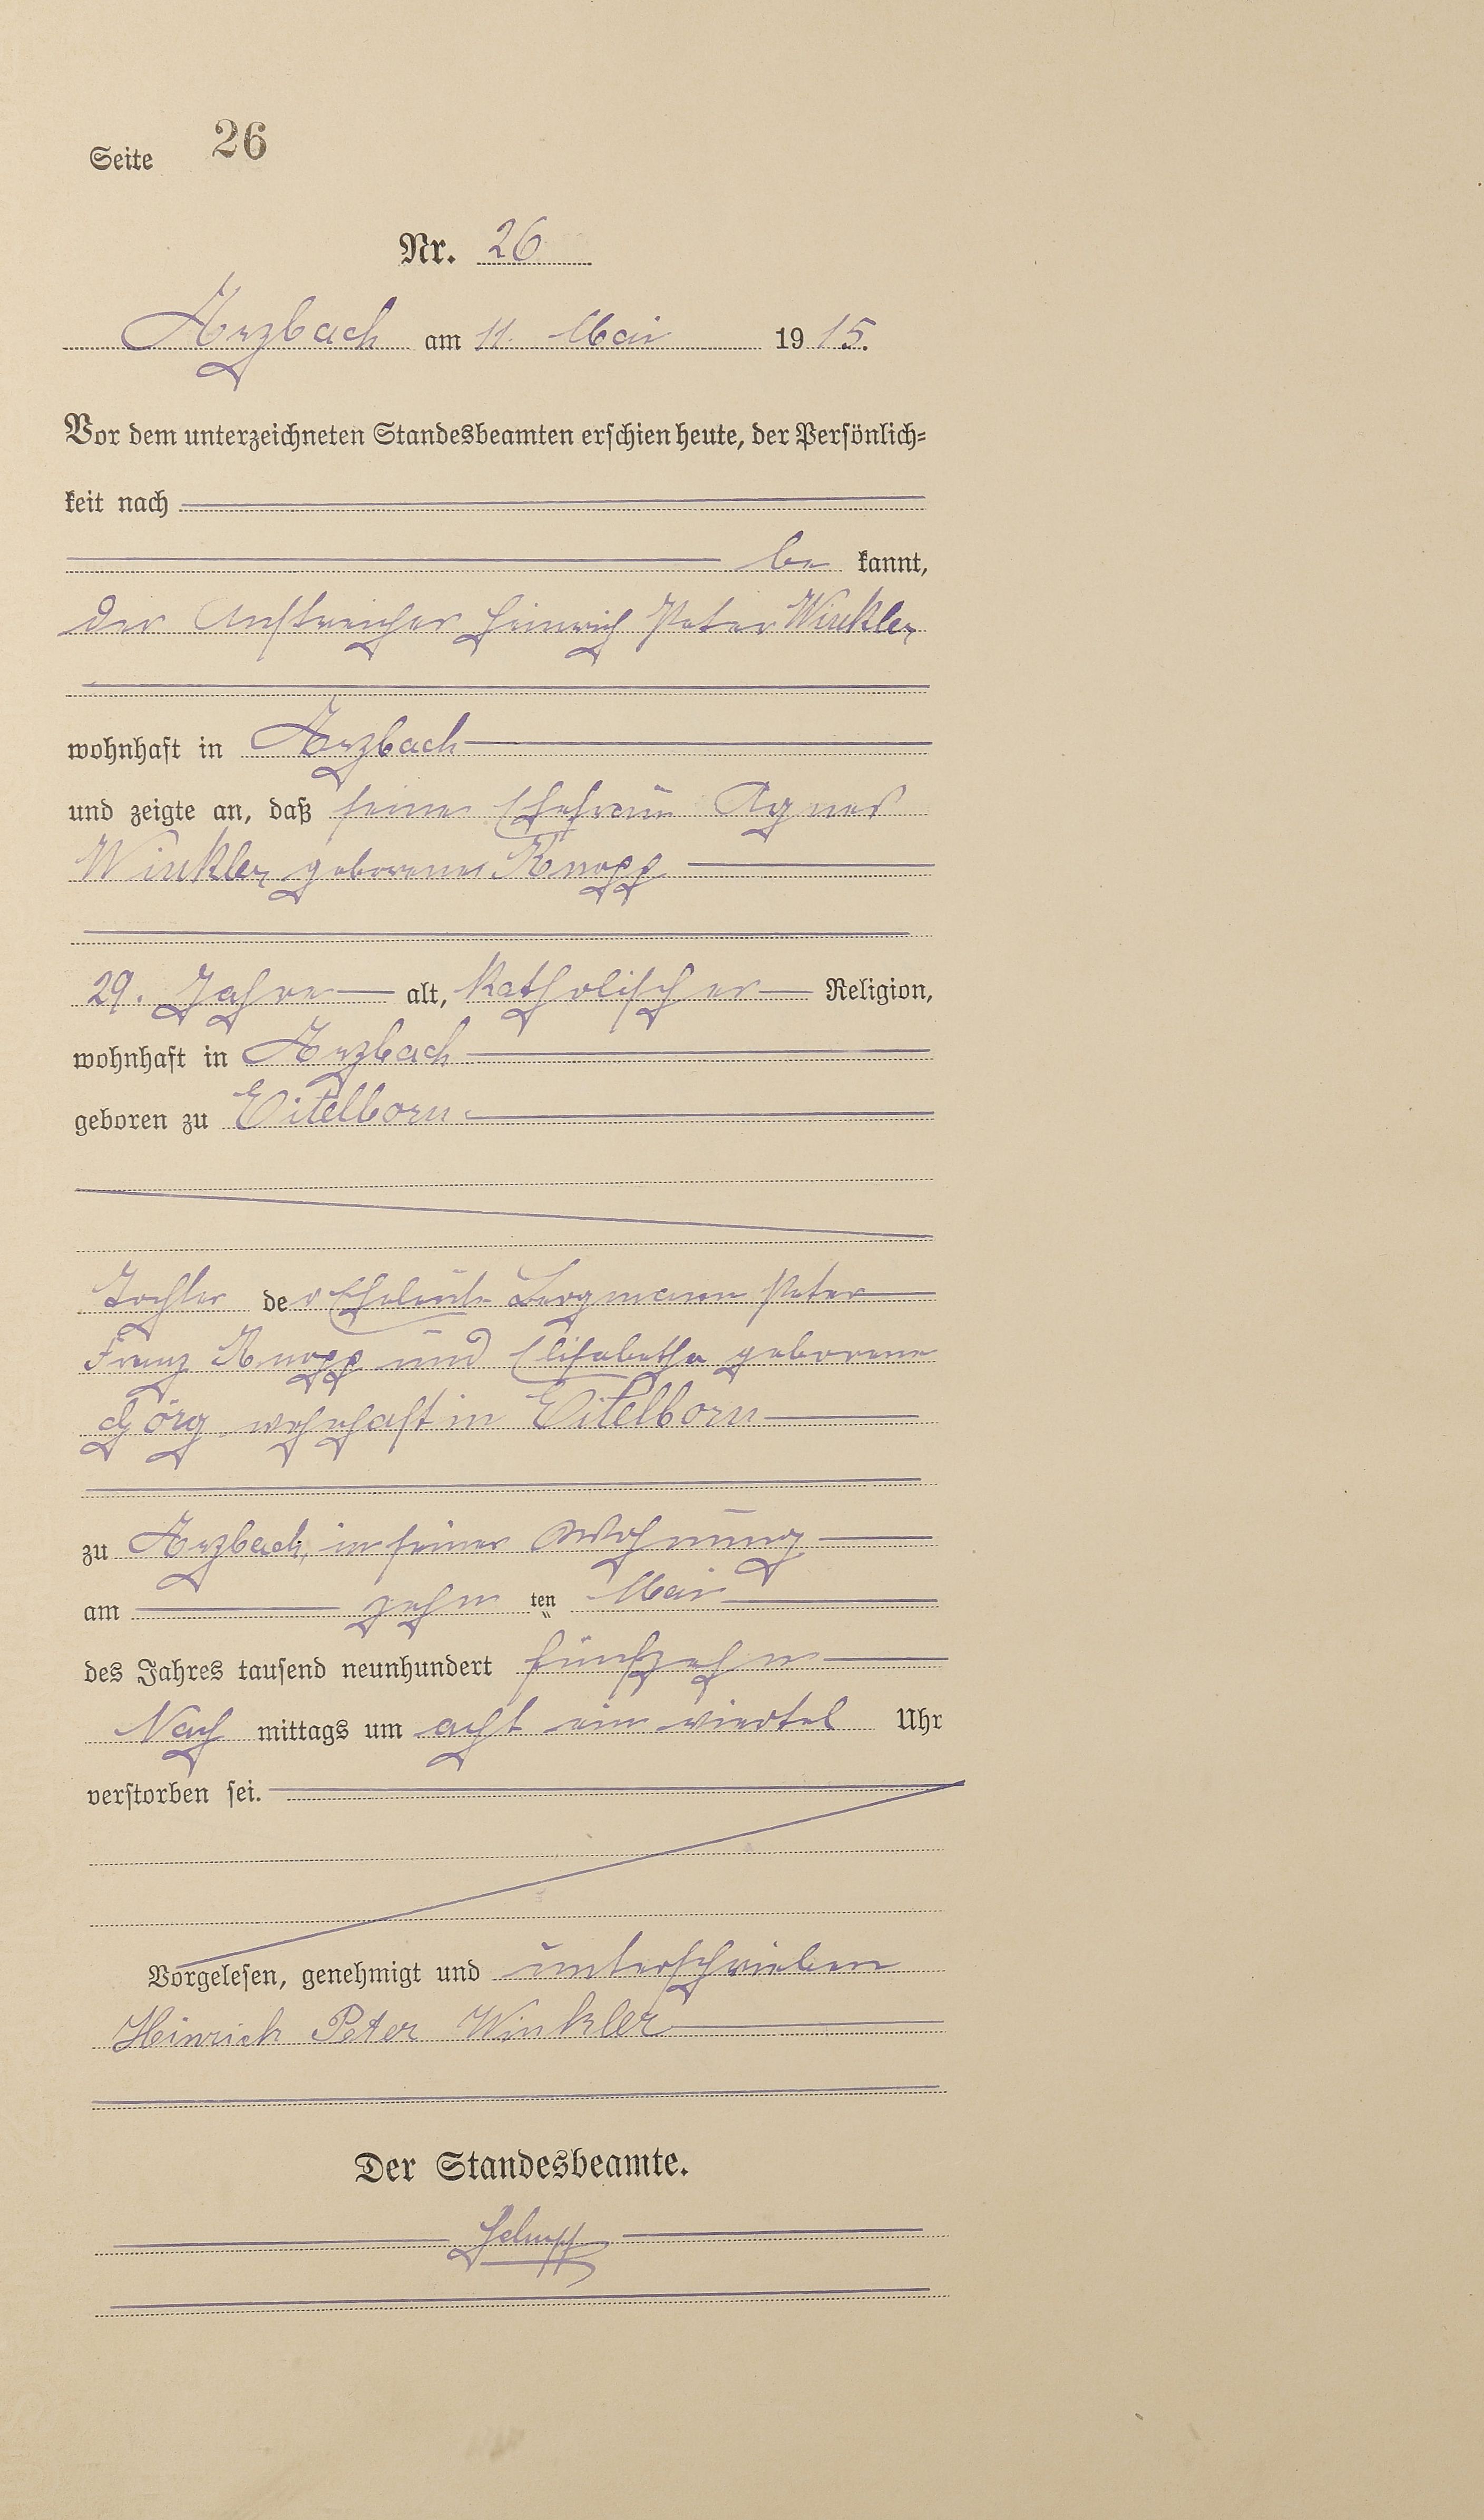 Seite 26
Nr. 26
Arzbach am 11. Mai 1915.
Vor dem unterzeichneten Standesbeamten erschien heute, der Persönlich-
keit nach
be kannt,
der Anstreicher Heinrich Peter Winkler
wohnhaft in Arzbach
und zeigte an, daß seine Ehefrau Agnes
Winkler geborene Knopp
29. Jahre alt, katholischer Religion,
wohnhaft in Arzbach
geboren zu Eitelborn
Tochter der Eheleute Bergmann Peter
Franz Knopp und Elisabetha geborene
Görg wohnhaft in Eitelborn
zu Arzbach, in seiner Wohnung
am zehn ten Mai
des Jahres tausend neunhundert fünfzehn
Nach mittags um acht ein viertel Uhr
verstorben sei.
Vorgelesen, genehmigt und unterschrieben
Heinrich Peter Winkler
Der Standesbeamte.